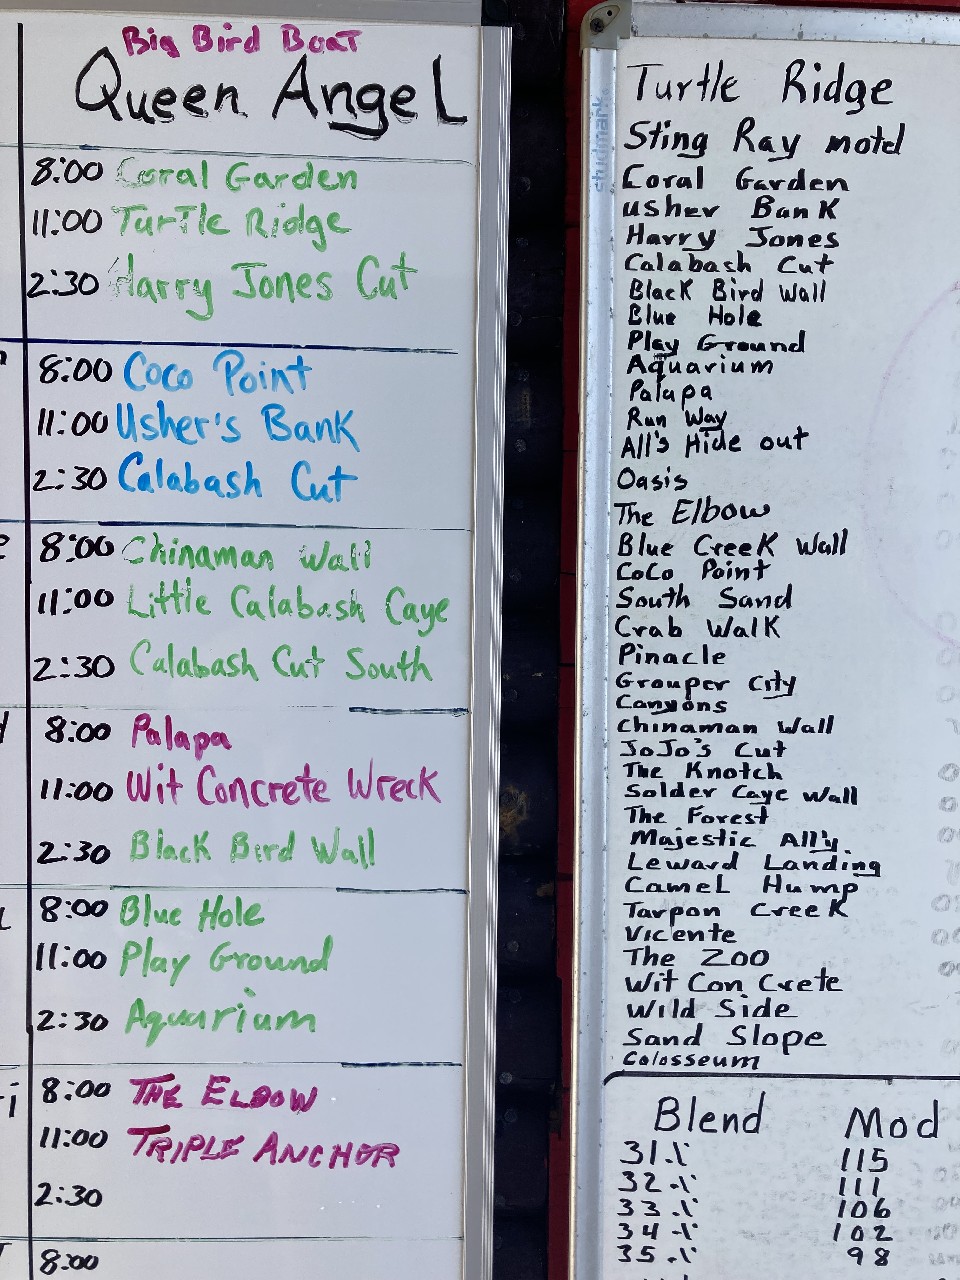 Big Bird Boat
Queen Angel
8:00 Coral Garden
11:00 Turtle Ridge
2:30 Harry Jones Cut
8:00 Coco Point
11:00 Usher's Bank
2:30 Calabash Cut
8:00 Chinaman Wall
11:00 Little Calabash Caye
2:30 Calabash Cut South
8:00 Palapa
11:00 Wit Concrete Wreck
2:30 Black Bird Wall
8:00 Blue Hole
11:00 Play Ground
2:30 Aquarium
8:00 THE ELBOW
11:00 TRIPLE ANCHOR
2:30
8:00
studmark
Turtle Ridge
Sting Ray motel
Coral Garden
Usher Bank
Harry Jones
Calabash Cut
Black Bird Wall
Blue Hole
Play Ground
Aquarium
Palapa
Run Way
All's Hide out
Oasis
The Elbow
Blue Creek Wall
CoCo Point
South Sand
Crab Walk
Pinacle
Grouper City
Canyons
Chinaman Wall
JoJo's Cut
The Knotch
Solder Caye Wall
The Forest
Majestic All'y.
Leward Landing
Camel Hump
Tarpon Creek
Vicente
The Zoo
Wit Con Crete
Wild Side
Sand Slope
Colosseum
Blend Mod
31.\' 115
32.\' 111
33.\' 106
34.\' 102
35.\' 98